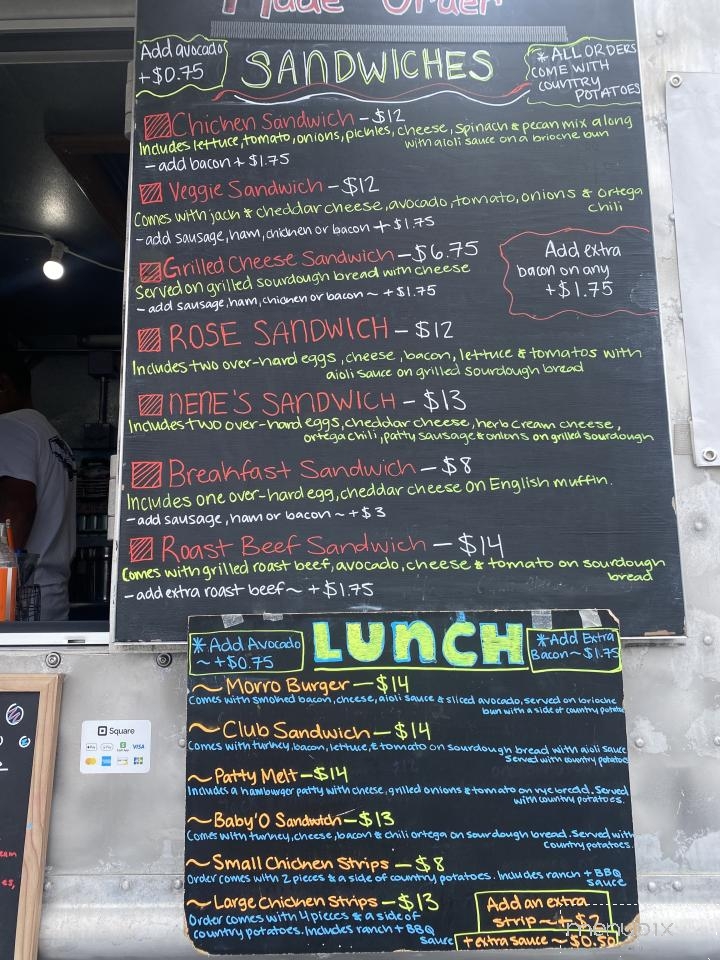 Made Order
Add avocado
+$0.75
SANDWICHES
*ALL ORDERS
COME WITH
COUNTRY
POTATOES
Chicken Sandwich - $12
Includes lettuce, tomato, onions, pickles, cheese, spinach & pecan mix along
with aioli sauce on a brioche bun
- add bacon + $1.75
Veggie Sandwich - $12
Comes with jack & cheddar cheese, avocado, tomato, onions & ortega
chili
- add sausage, ham, chicken or bacon + $1.75
Grilled Cheese Sandwich - $6.75
Served on grilled sourdough bread with cheese
- add sausage, ham, chicken or bacon ~ + $1.75
Add extra
bacon on any
+$1.75
ROSE SANDWICH - $12
Includes two over-hard eggs, cheese, bacon, lettuce & tomatos with
aioli sauce on grilled sourdough bread
NENE'S SANDWICH - $13
Includes two over-hard eggs, cheddar cheese, herb cream cheese,
ortega chili, patty sausage & onions on grilled sourdough
Breakfast Sandwich - $8
Includes one over-hard egg, cheddar cheese on English muffin.
- add sausage, ham or bacon ~ + $3
Roast Beef Sandwich - $14
Comes with grilled roast beef, avocado, cheese & tomato on sourdough
bread
- add extra roast beef ~ + $1.75
*Add Avocado
~ +$0.75
LUNCH
*Add Extra
Bacon ~ $1.75
~ Morro Burger - $14
Comes with smoked bacon, cheese, aioli sauce & sliced avocado, served on brioche
bun with a side of country
~ Club Sandwich - $14
Comes with turkey, bacon, lettuce, & tomato on sourdough bread with aioli sauce
Served with country
~ Patty Melt - $14
Includes a hamburger patty with cheese, grilled onions & tomato on rye bread. Served
with country potatoes.
~ Baby'O Sandwich - $13
Comes with turkey, cheese, bacon & chili ortega on sourdough bread. Served with
country potatoes.
~ Small Chicken Strips - $8
Order comes with 2 pieces & a side of country potatoes. Includes ranch + BBQ
sauce
~ Large Chicken Strips - $13
Order comes with 4 pieces & a side of
country potatoes. Includes ranch + BBQ
sauce
Add an extra
strip ~ + $2
+ extra sauce ~ $0.50
Square
Pay
G Pay
VISA
menupix